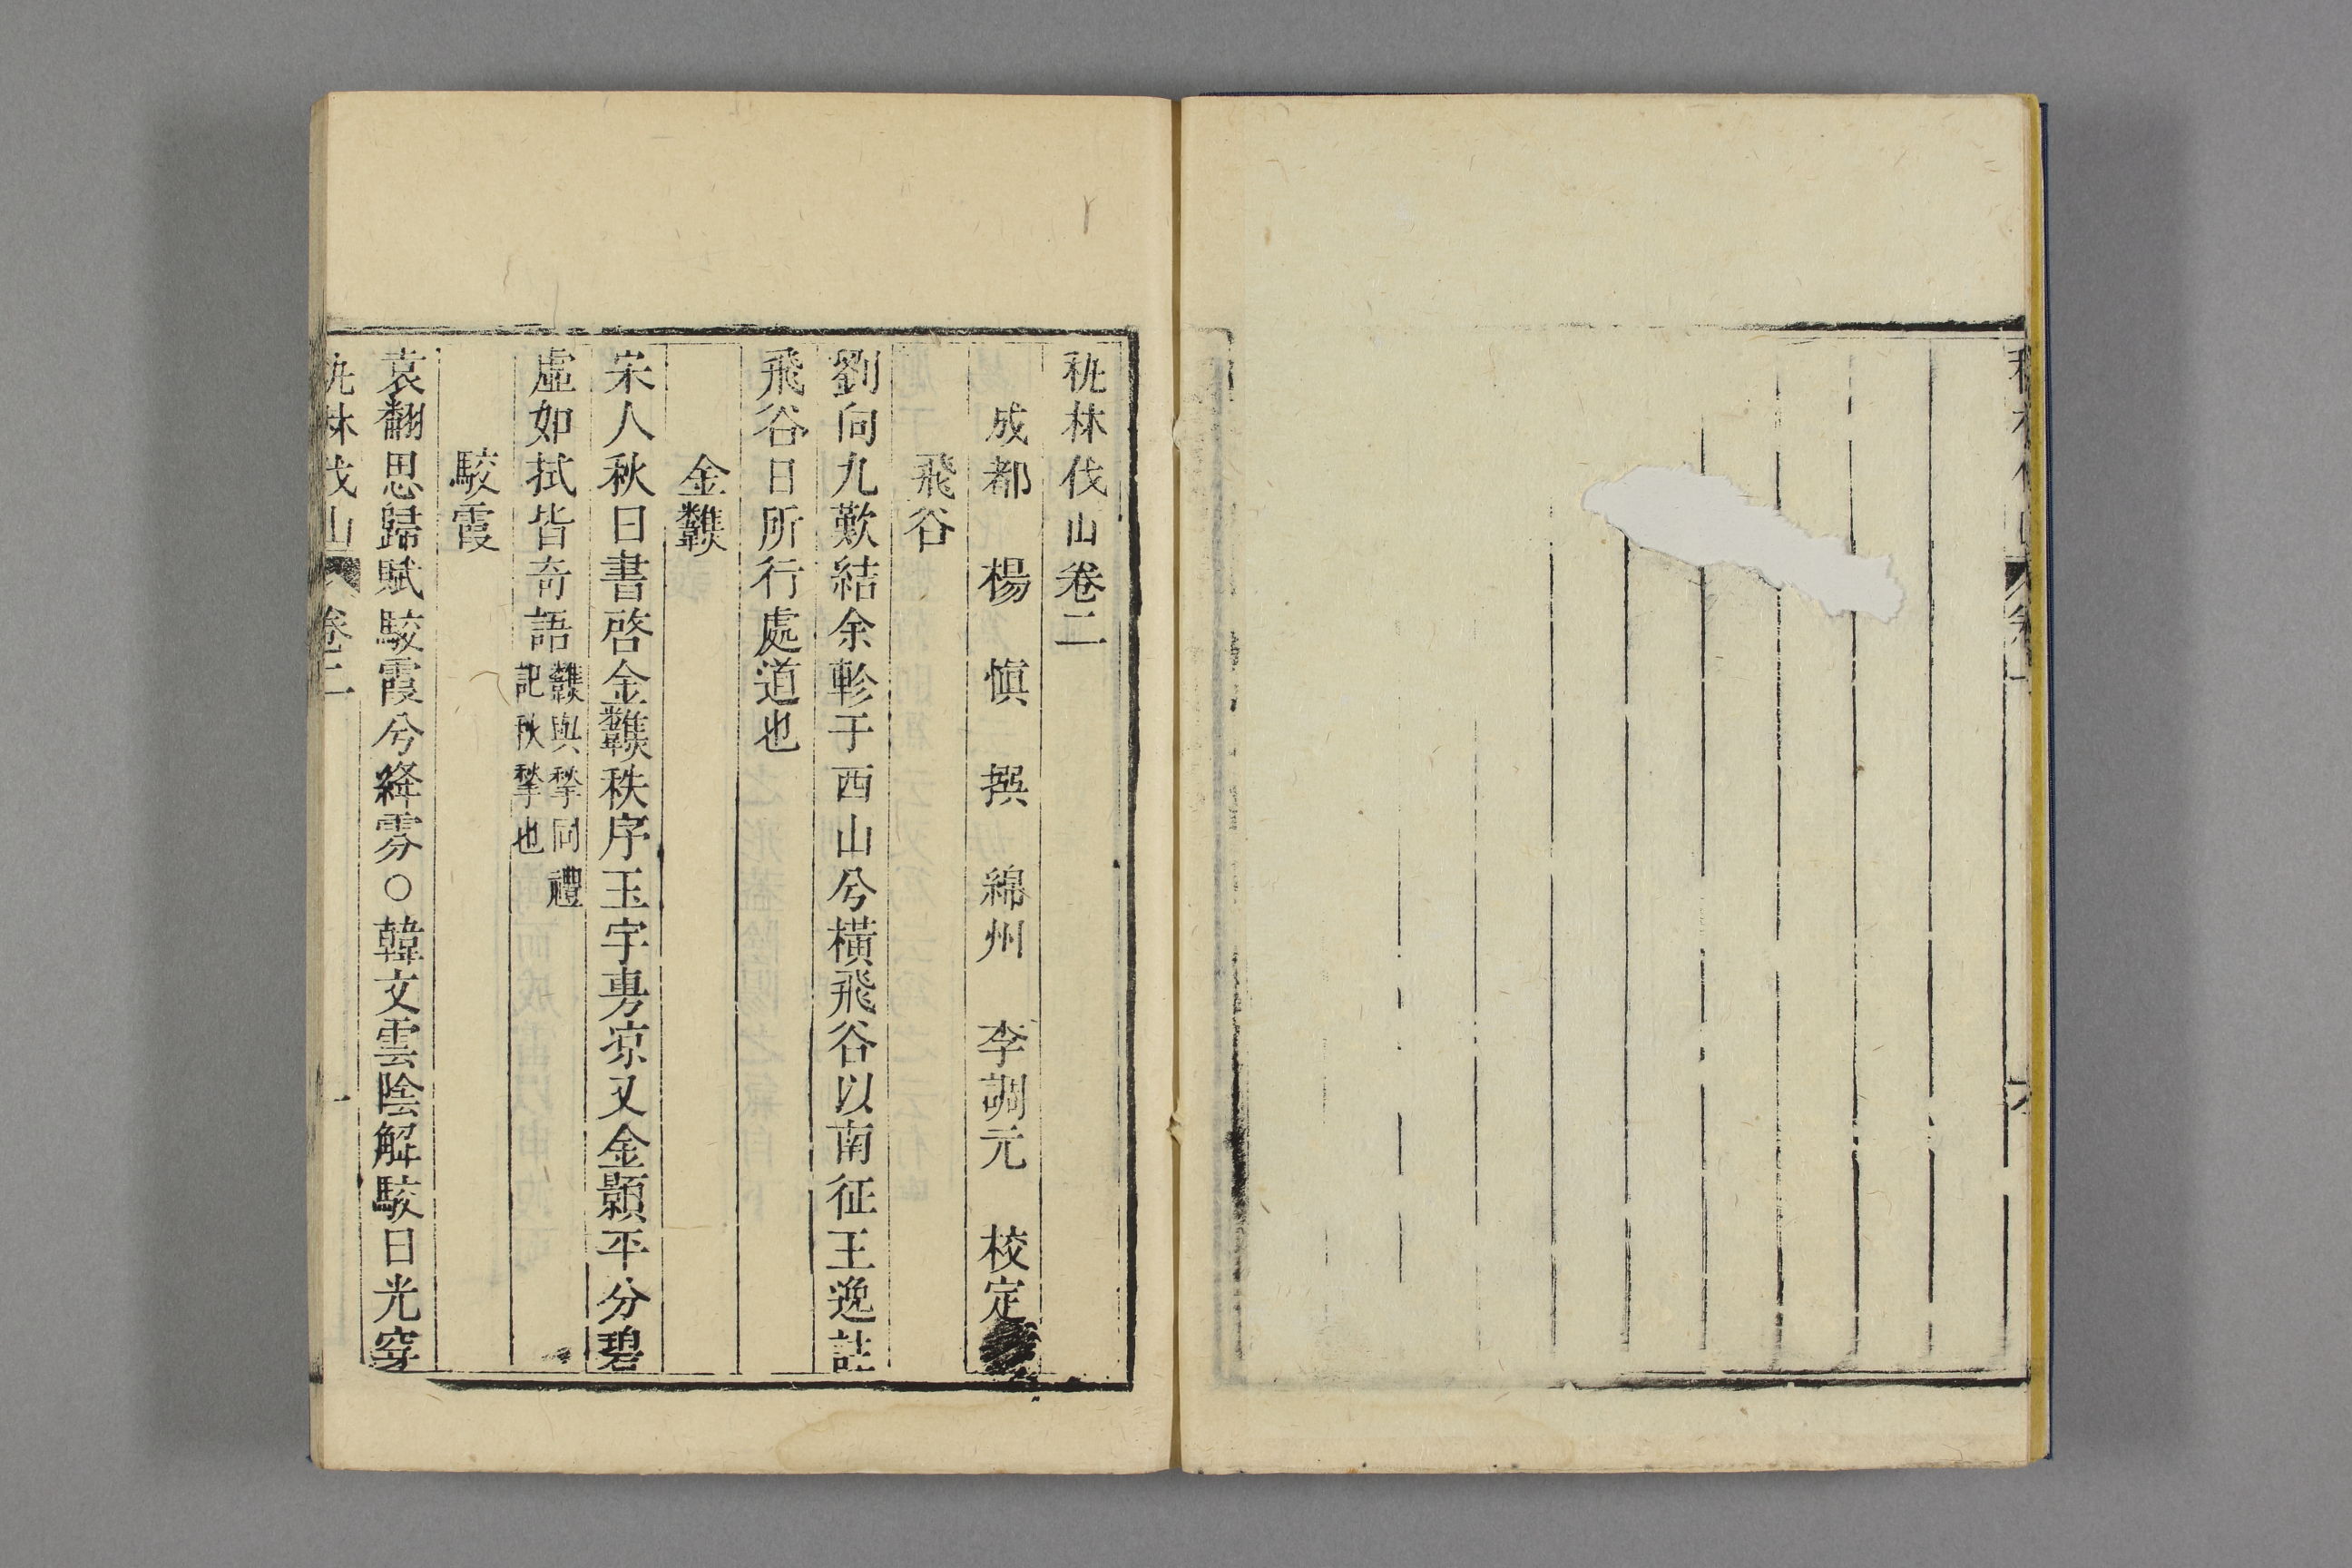 秇林伐山卷二
成都 楊 慎 撰 綿州 李調元 校定
飛谷
劉向九歎結余軫于西山兮橫飛谷以南征王逸註
飛谷日所行處道也
金
宋人秋日書啓金秩序玉宇旉凉又金顥平分碧
虛如拭皆奇語與揫同禮記秋揫也
駮霞
袁翻思歸賦駮霞兮絳雰○韓文雲陰解駮日光穿
秇林伐山 卷二 一